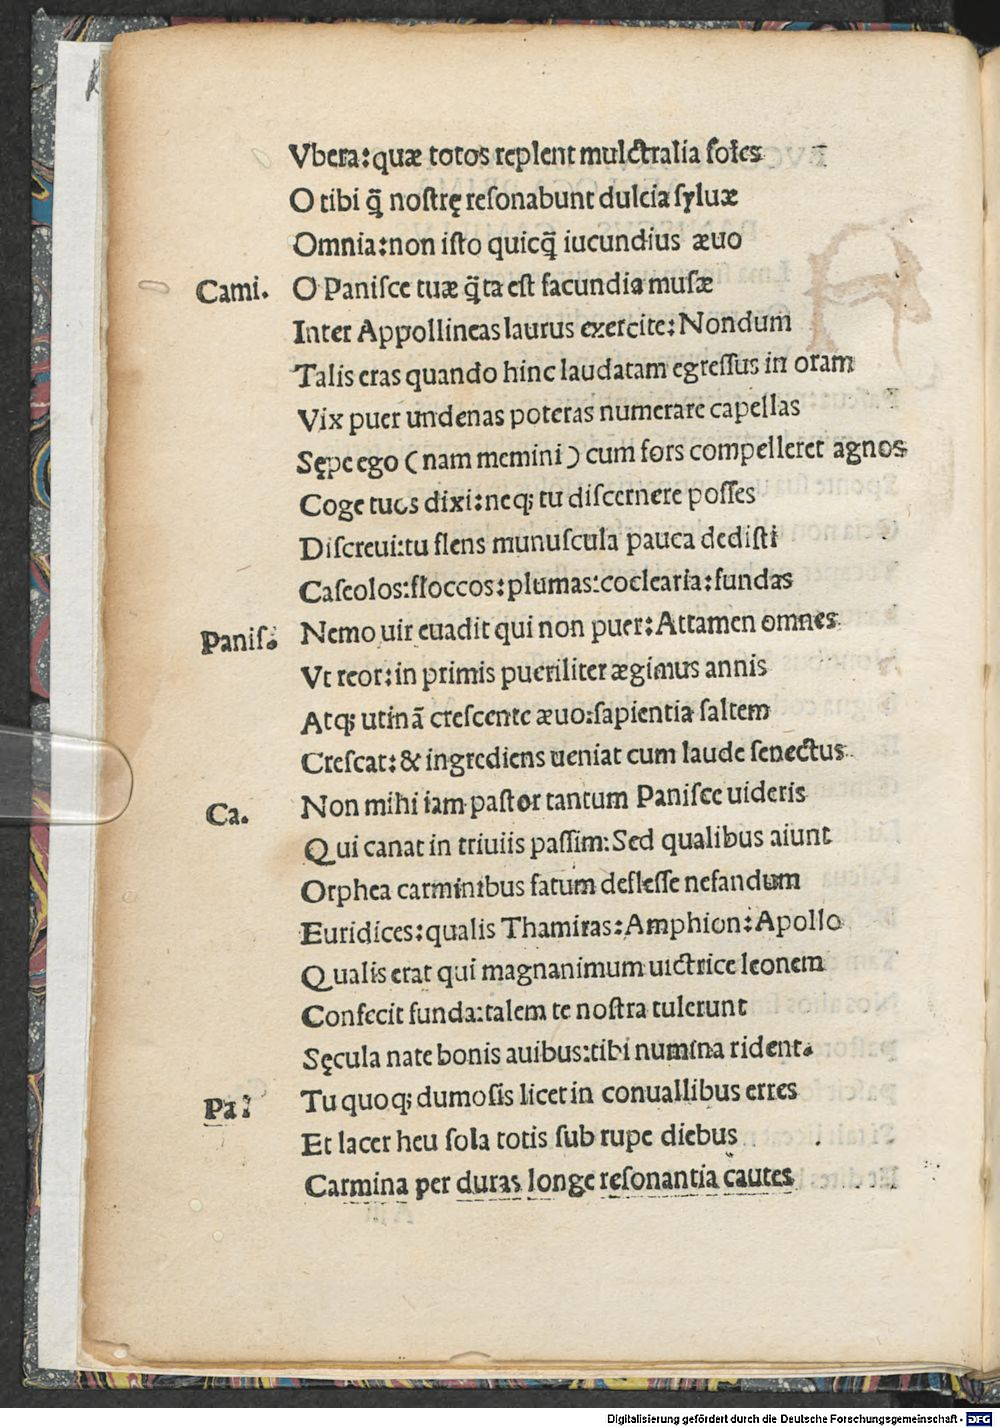 Vbera:quæ totos replent mulctralia ſoles
O tibi q̃ noſtrę reſonabunt dulcia ſyluæ
Omnia:non iſto quicq̃ iucundius æuo
Cami. O Paniſce tuæ q̃ta eſt facundia muſæ
Inter Appollineas laurus exercite:Nondum
Talis eras quando hinc laudatam egreſſus in oram
Vix puer undenas poteras numerare capellas
Sępe ego (nam memini) cum fors compelleret agnos
Coge tuos dixi:neq; tu diſcernere poſſes
Diſcreui:tu flens munuſcula pauca dediſti
Caſeolos:floccos:plumas:coclearia:fundas
Paniſ. Nemo uir euadit qui non puer:Attamen omnes
Vt reor:in primis pueriliter ægimus annis
Atq; utinã creſcente æuo:ſapientia ſaltem
Creſcat:& ingrediens ueniat cum laude ſenectus
Ca. Non mihi iam paſtor tantum Paniſce uideris
Qui canat in triuiis paſſim:Sed qualibus aiunt
Orphea carminibus fatum defleſſe nefandum
Euridices:qualis Thamiras:Amphion:Apollo
Qualis erat qui magnanimum uictrice leonem
Confecit funda:talem te noſtra tulerunt
Sęcula nate bonis auibus:tibi numina rident.
Pa: Tu quoq; dumoſis licet in conuallibus erres
Et lacer heu ſola totis ſub rupe diebus
Carmina per duras longe reſonantia cautes
Digitalisierung gefördert durch die Deutsche Forschungsgemeinschaft - DFG